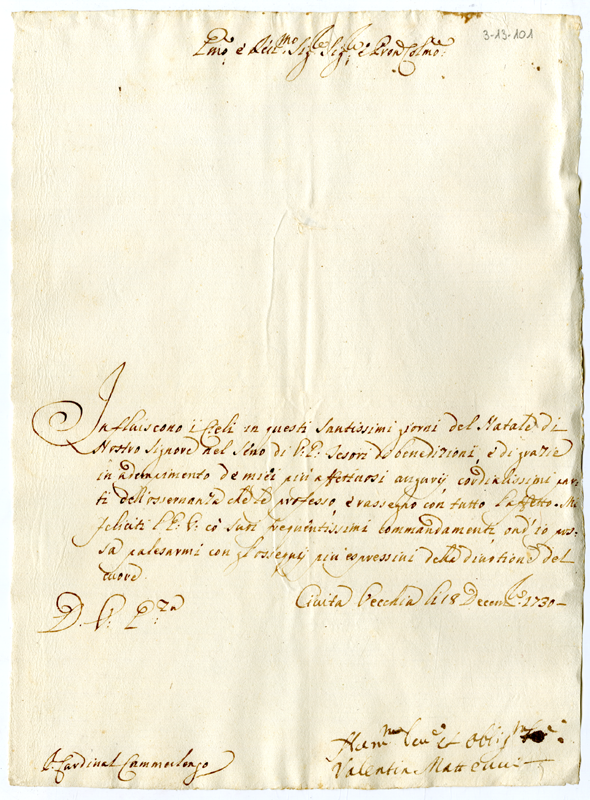 3-13-101
Emo e Reu:mo Sig:re Sig:re e Pron Colmo:
Influiscono i Cieli in questi Santissimi giorni del Natale di
Nostro Signore nel Seno di V:E: Tesori di benedizioni, e di grazie
in adempimento de miei più affettuosi augurij cordialissimi par=
ti dell'osservanza che le professo, e rassegno con tutto l'affetto. Mi
feliciti l'E: V: co' suoi frequentissimi commandamenti, ond'io pos=
sa palesarmi con gl'ossequij più espressivi della divotione del
cuore.
Civita Vecchia li 18 Decem:bre 1730
D. V. E:za
Hum:mo Seru:e et Obli:mo
S. Cardinal Cammerlengo
Valentin Matteucci